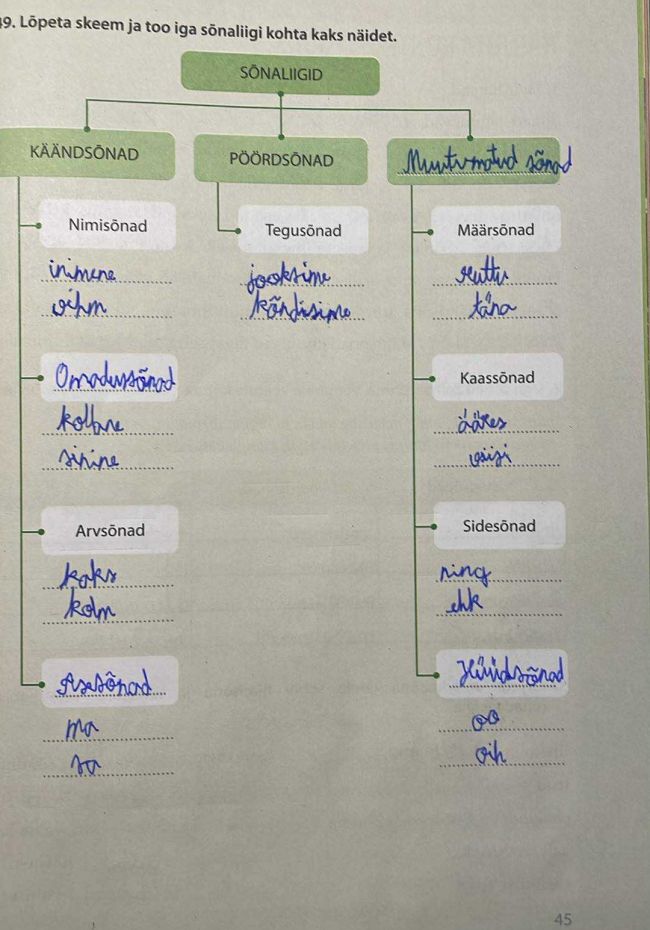 19. Lõpeta skeem ja too iga sõnaliigi kohta kaks näidet.
SÕNALIIGID
KÄÄNDSÕNAD
PÖÖRDSÕNAD
Muutumatud sõnad
Nimisõnad
inimene
vihm
Omadussõnad
kollane
sinine
Arvsõnad
kaks
kolm
Asesõnad
ma
sa
Tegusõnad
jooksime
kõndisime
Määrsõnad
ruttu
täna
Kaassõnad
ääres
Sidesõnad
ning
ehk
Hüüdsõnad
oo
oih
45